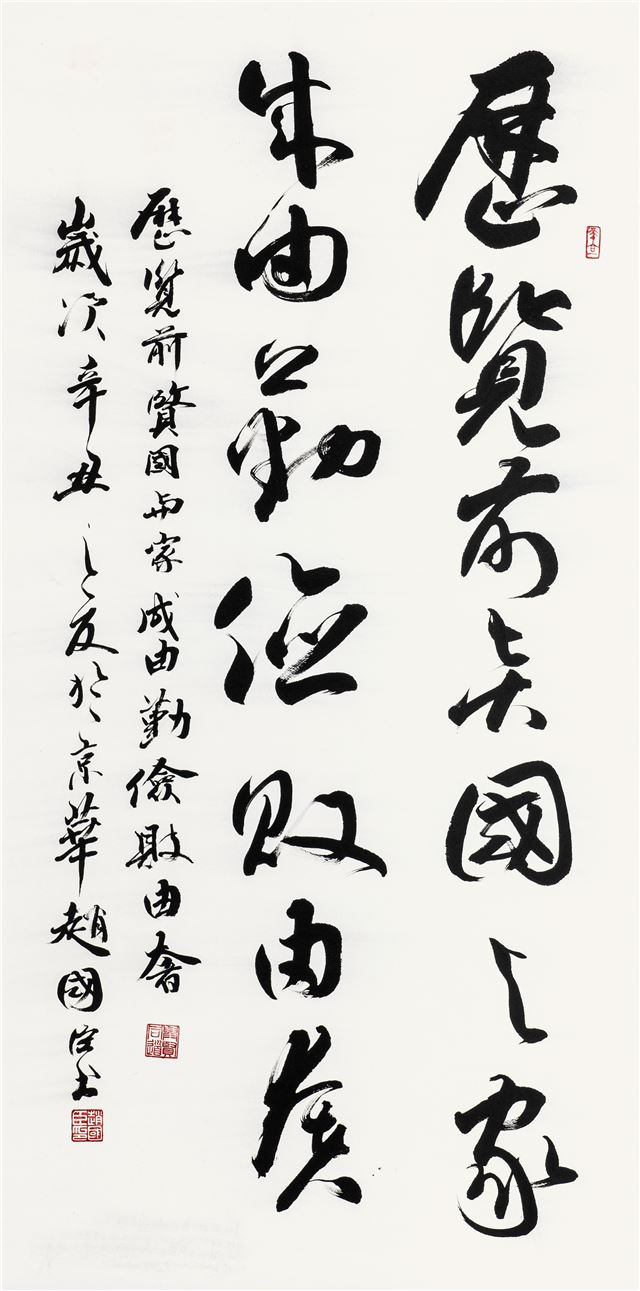 歷覽前賢國与家
成由勤儉敗由奢
歷覽前賢國与家成由勤儉敗由奢
歲次辛丑之夏於京華趙國书